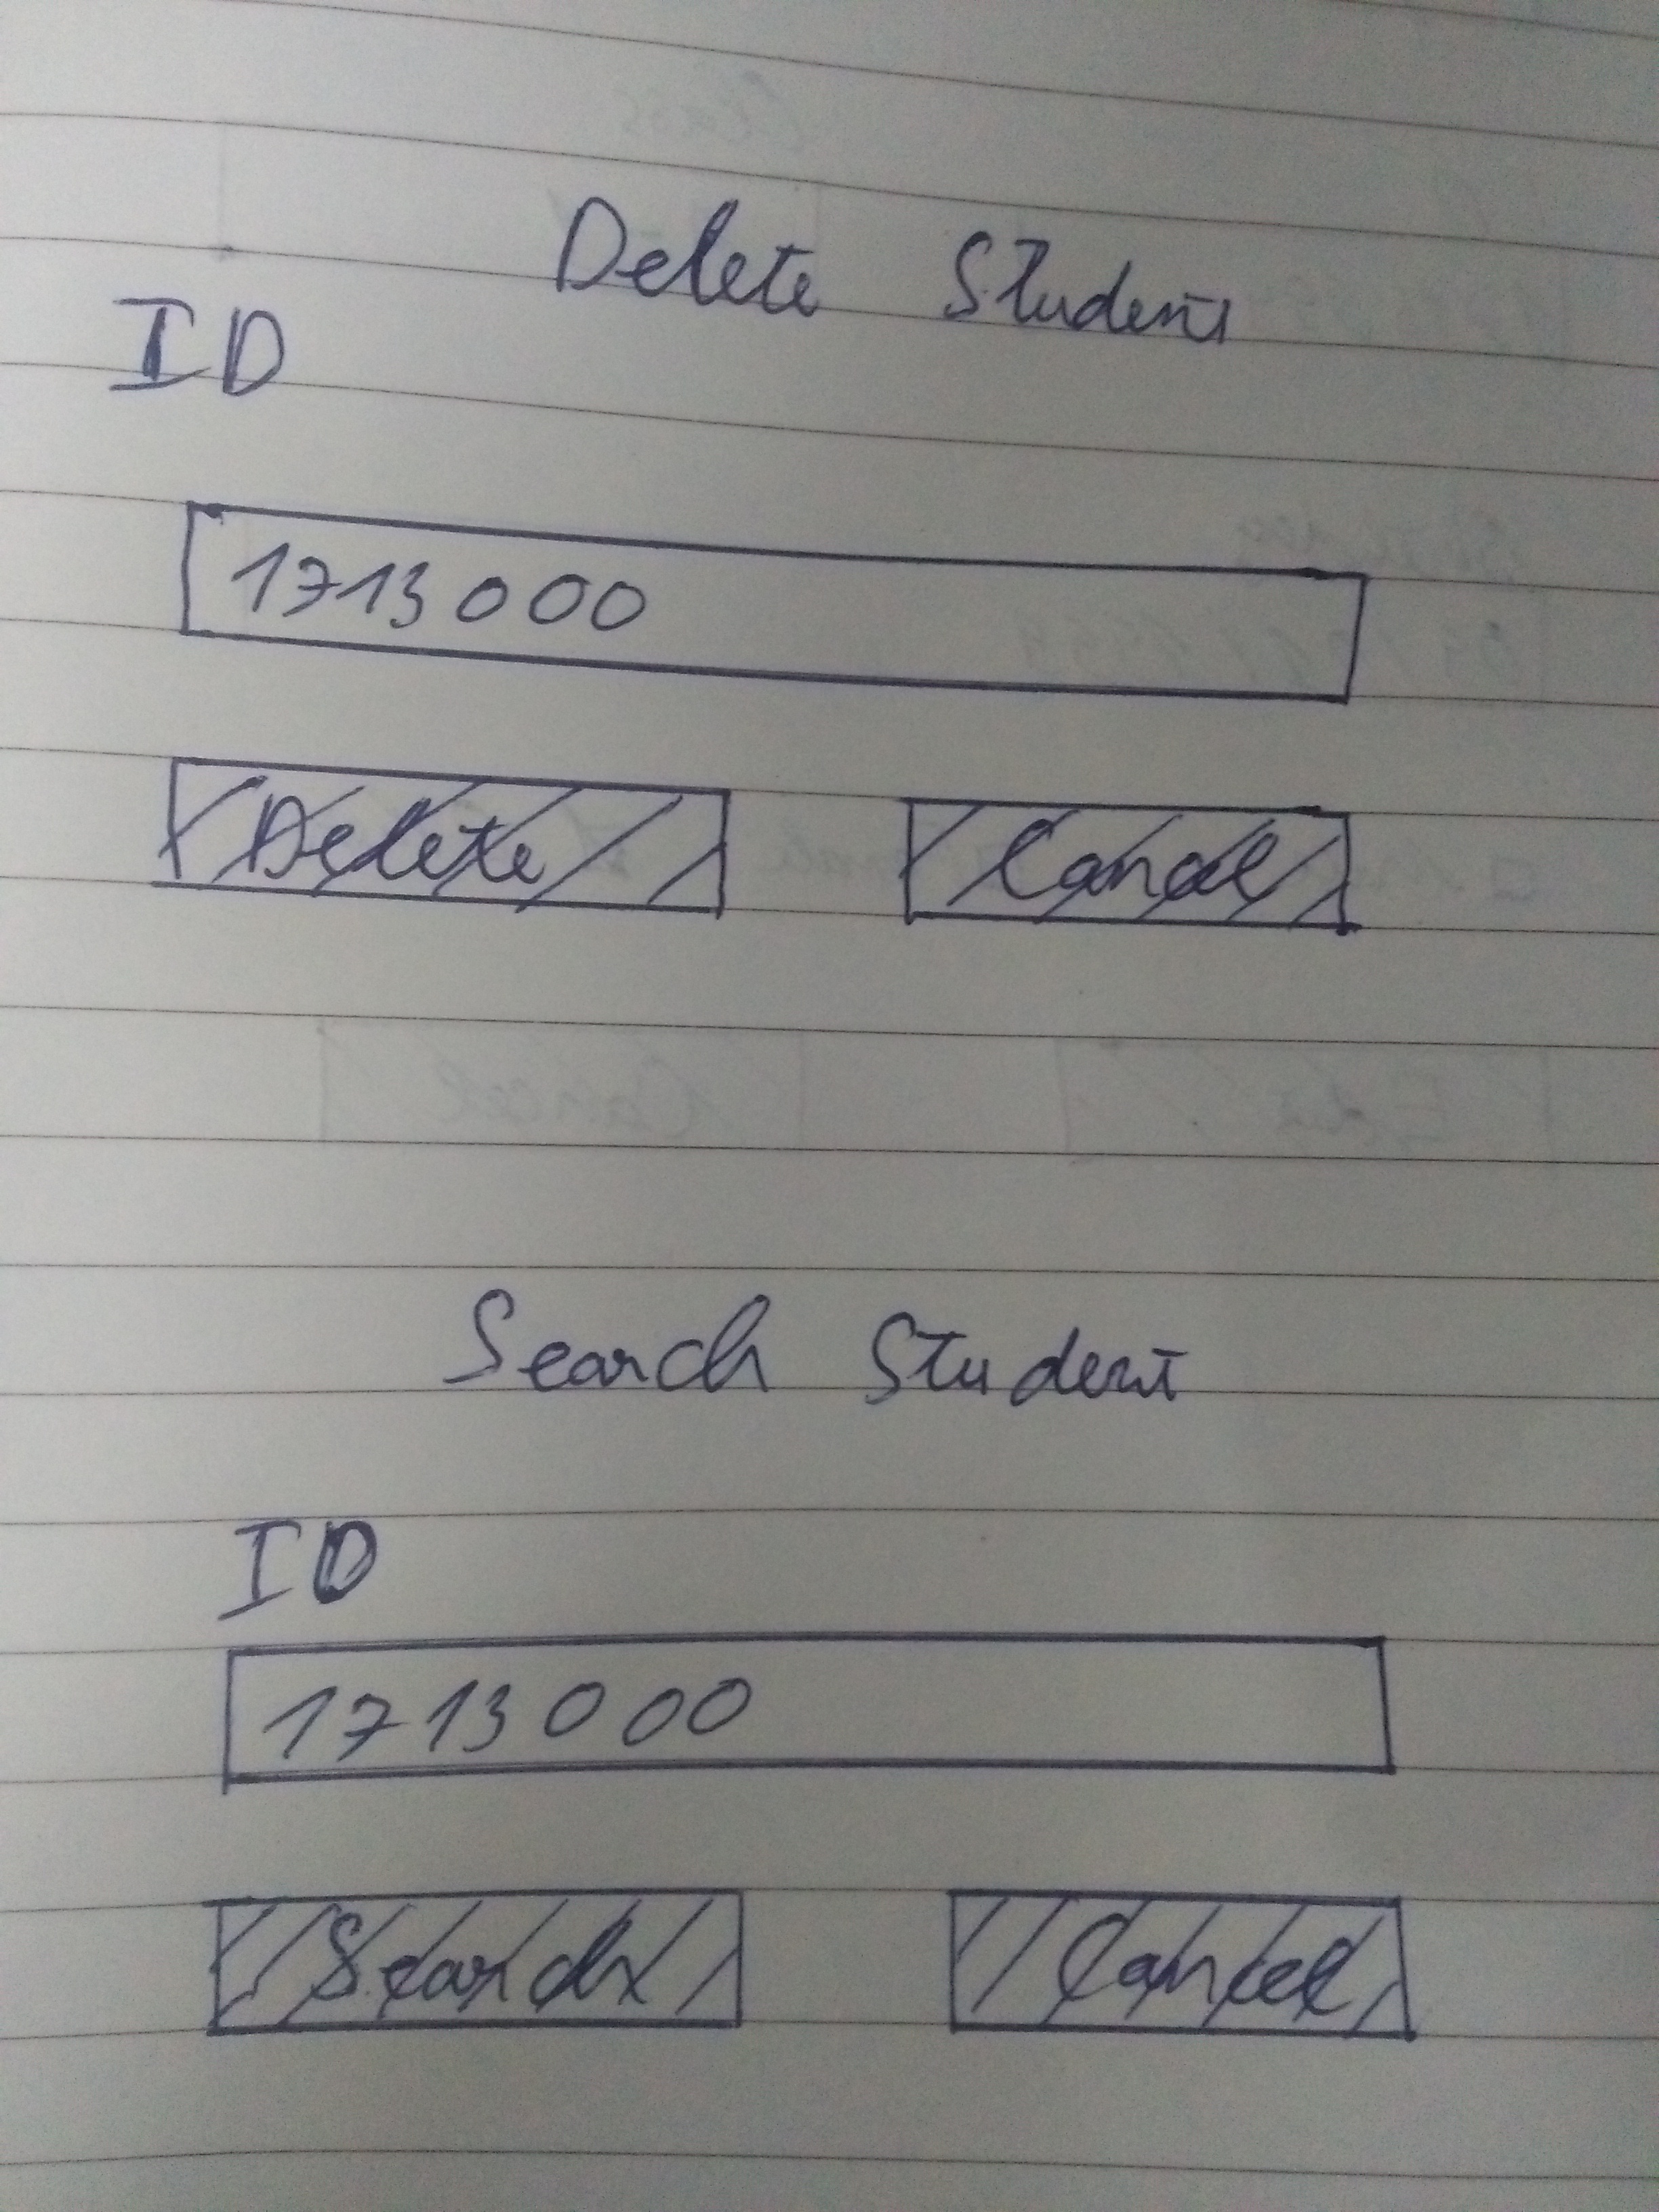 Delete Student
ID
1713000
Delete Cancel
Search Student
ID
1713000
Search Cancel